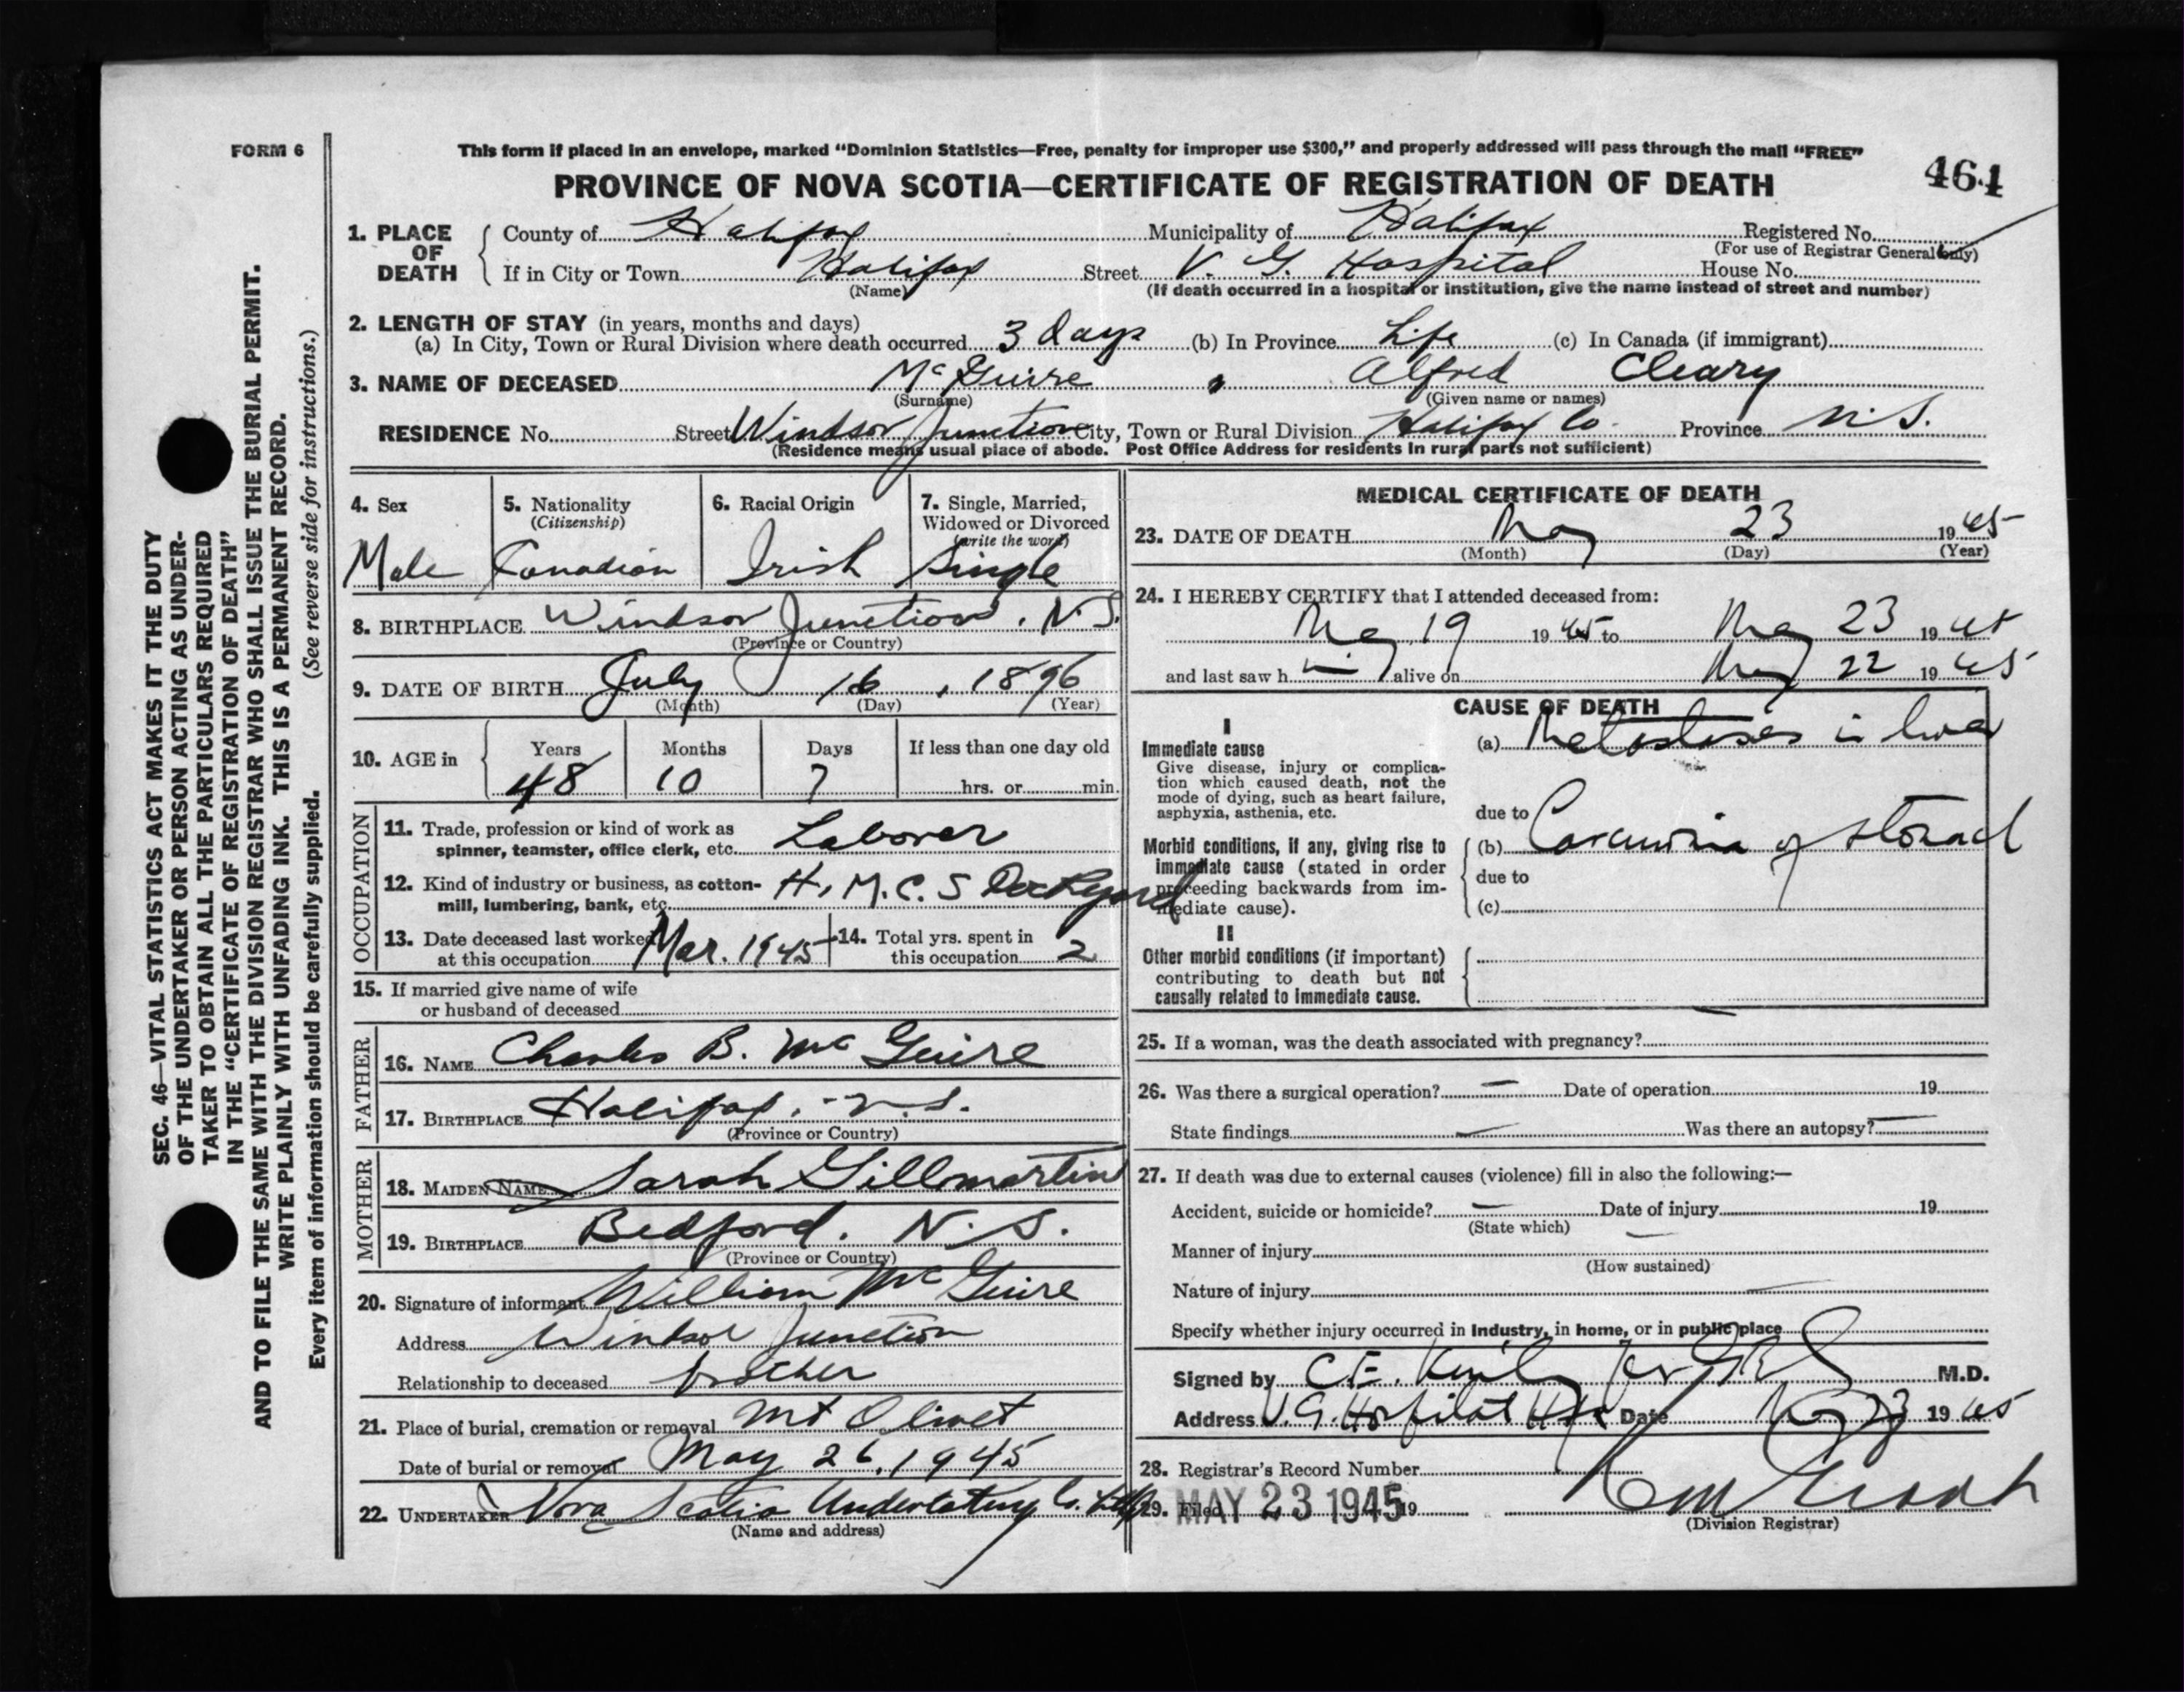 FORM 6
This form if placed in an envelope, marked "Dominion Statistics—Free, penalty for improper use $300," and properly addressed will pass through the mail "FREE"
PROVINCE OF NOVA SCOTIA—CERTIFICATE OF REGISTRATION OF DEATH
464
SEC. 46—VITAL STATISTICS ACT MAKES IT THE DUTY
OF THE UNDERTAKER OR PERSON ACTING AS UNDER-
TAKER TO OBTAIN ALL THE PARTICULARS REQUIRED
IN THE "CERTIFICATE OF REGISTRATION OF DEATH"
AND TO FILE THE SAME WITH THE DIVISION REGISTRAR WHO SHALL ISSUE THE BURIAL PERMIT.
WRITE PLAINLY WITH UNFADING INK. THIS IS A PERMANENT RECORD.
Every item of information should be carefully supplied. (See reverse side for instructions.)
1. PLACE OF DEATH
County of Halifax Municipality of Halifax Registered No.
(For use of Registrar General only)
If in City or Town Halifax Street V. G. Hospital House No.
(Name) (If death occurred in a hospital or institution, give the name instead of street and number)
2. LENGTH OF STAY (in years, months and days)
(a) In City, Town or Rural Division where death occurred 3 days (b) In Province Life (c) In Canada (if immigrant)
3. NAME OF DECEASED McGuire , Alfred Cleary
(Surname) (Given name or names)
RESIDENCE No. Street Windsor Junction City, Town or Rural Division Halifax Co. Province N.S.
(Residence means usual place of abode. Post Office Address for residents in rural parts not sufficient)
4. Sex
Male
5. Nationality
(Citizenship)
Canadian
6. Racial Origin
Irish
7. Single, Married,
Widowed or Divorced
(write the word)
Single
8. BIRTHPLACE Windsor Junction, N.S.
(Province or Country)
9. DATE OF BIRTH July 16, 1896
(Month) (Day) (Year)
10. AGE in Years Months Days If less than one day old
48 10 7 hrs. or min.
OCCUPATION
11. Trade, profession or kind of work as
spinner, teamster, office clerk, etc. Laborer
12. Kind of industry or business, as cotton-
mill, lumbering, bank, etc. H.M.C.S Dockyard
13. Date deceased last worked
at this occupation Mar. 1945
14. Total yrs. spent in
this occupation 2
15. If married give name of wife
or husband of deceased
FATHER
16. NAME Charles B. McGuire
17. BIRTHPLACE Halifax, N.S.
(Province or Country)
MOTHER
18. MAIDEN NAME Sarah Gillmartin
19. BIRTHPLACE Bedford, N.S.
(Province or Country)
20. Signature of informant William McGuire
Address Windsor Junction
Relationship to deceased brother
21. Place of burial, cremation or removal Mt Olivet
Date of burial or removal May 26, 1945
22. UNDERTAKER Nova Scotia Undertaking Co.
(Name and address)
MEDICAL CERTIFICATE OF DEATH
23. DATE OF DEATH May 23 1945
(Month) (Day) (Year)
24. I HEREBY CERTIFY that I attended deceased from:
May 19 1945 to May 23 1945
and last saw him alive on May 22 1945
CAUSE OF DEATH
I
Immediate cause
Give disease, injury or complica-
tion which caused death, not the
mode of dying, such as heart failure,
asphyxia, asthenia, etc.
(a) Metastases in liver
due to
Morbid conditions, if any, giving rise to
immediate cause (stated in order
proceeding backwards from im-
mediate cause).
(b) Carcinoma of stomach
due to
(c)
II
Other morbid conditions (if important)
contributing to death but not
causally related to immediate cause.
25. If a woman, was the death associated with pregnancy?
26. Was there a surgical operation? — Date of operation 19
State findings — Was there an autopsy? —
27. If death was due to external causes (violence) fill in also the following:—
Accident, suicide or homicide? — Date of injury 19
(State which)
Manner of injury —
(How sustained)
Nature of injury —
Specify whether injury occurred in Industry, in home, or in public place
Signed by C.E. M.D.
Address V.G. Hospital Hfx Date May 23 1945
28. Registrar's Record Number
29. Filed MAY 23 1945 19
(Division Registrar)